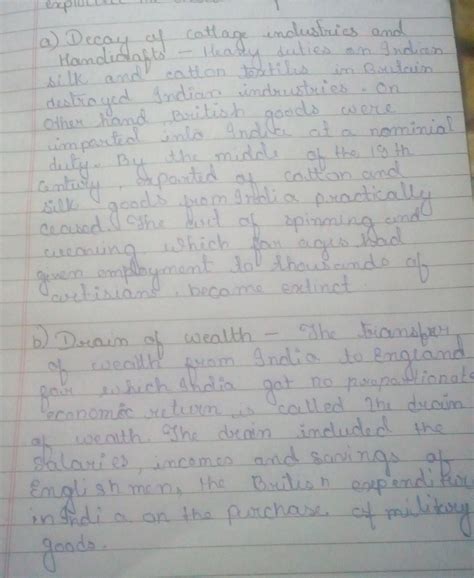 a) Decay of cottage industries and
Handicrafts - Heavy duties on Indian
silk and cotton textiles in Britain
destroyed Indian indrustries. On
other hand, British goods were
imported into India at a nominial
duty. By the middle of the 19th
century, exported of cotton and
silk goods from India practically
ceased. The art of spinning and
weaning which for ages had
given employment to thousands of
artisians, became extinct.
b) Drain of wealth - The transfer
of wealth from India to England
for which India got no propotionate
economic return is called the drain
of wealth. The drain included the
salaries, incomes and savings of
English men, the British expenditur
in India on the purchase of military
goods.